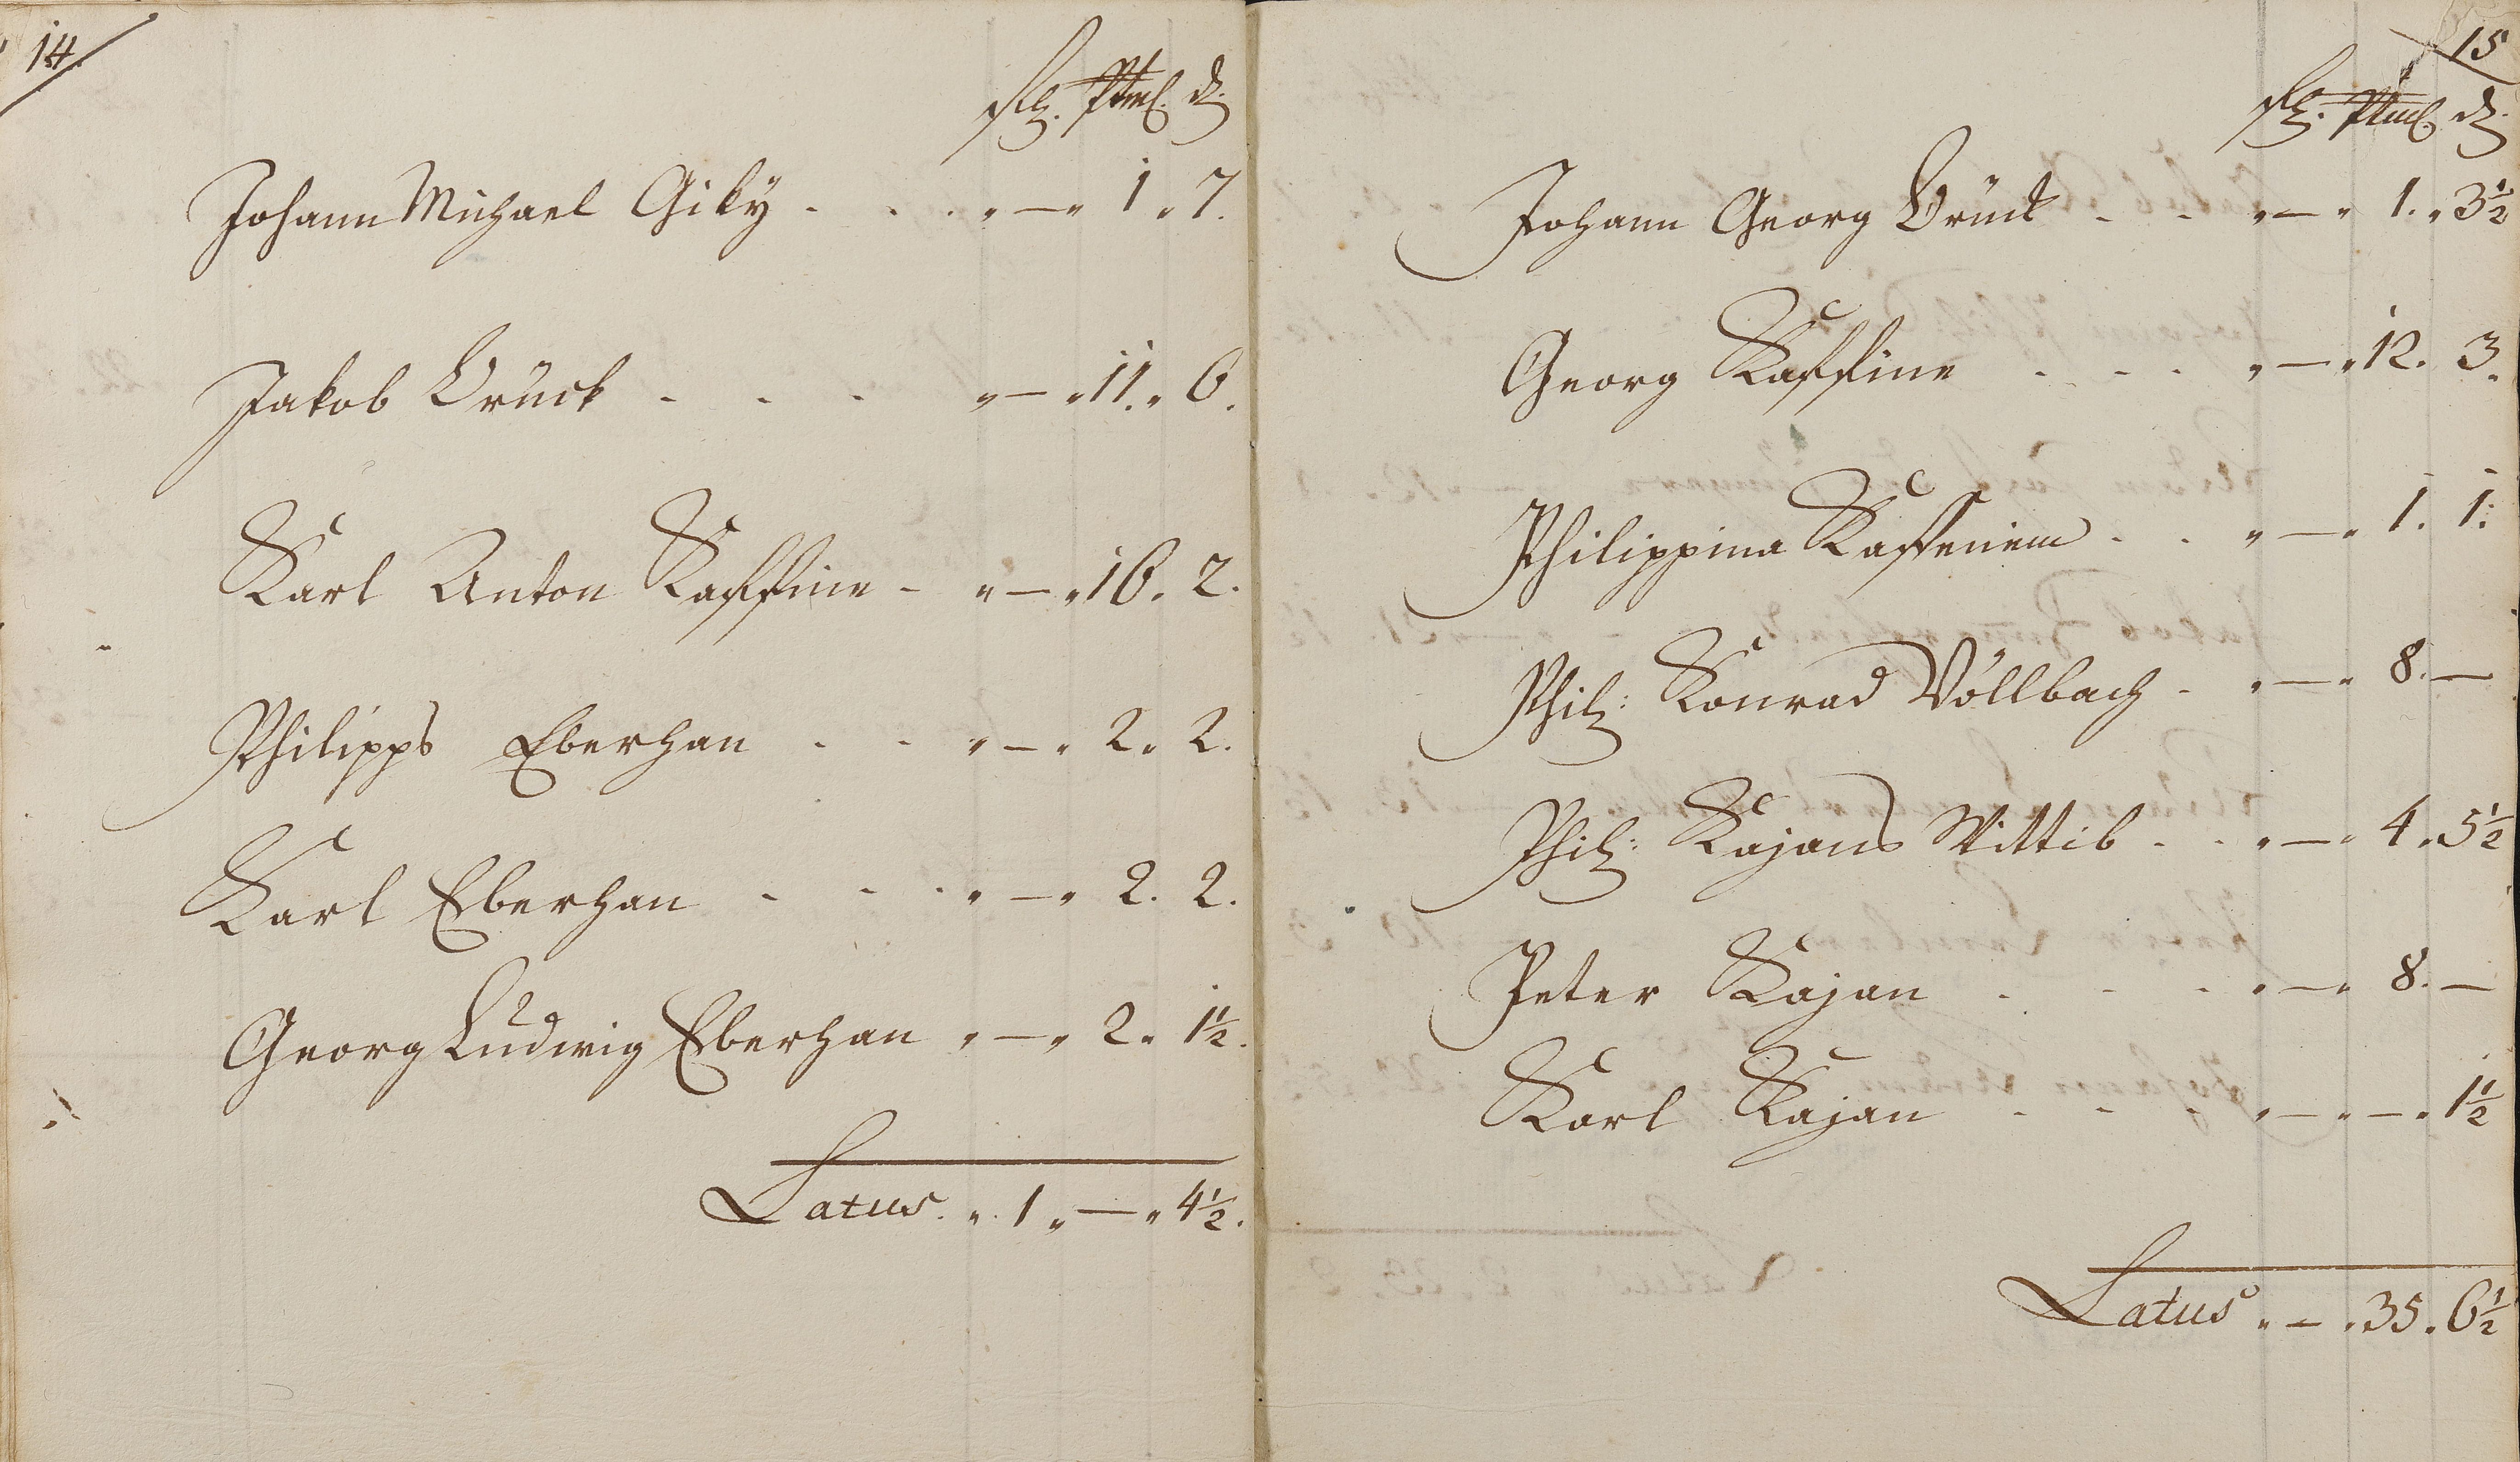 14
Rh. Ptml. d.
Johann Michael Giby . . . " — " 1 " 7.
Jakob Brück - - - " — " 11. " 6.
Karl Anton Kaffine - " — " 16. 2.
Philipps Eberhan - - " — " 2. 2.
Karl Eberhan - - . " — " 2. 2.
Georg Ludwig Eberhan " — " 2. 1½.
Latus. " 1 " — " 4½.
15
Johann Georg Brück - - " — " 1. " 3½
Georg Kaffine - - - " — " 12. 3.
Philippina Kaffenien - . " — " 1. 1.
Phil: Konrad Völlbach - " — " 8. —
Phil: Kajans Wittib - - " — " 4 " 5½
Peter Kajan - - - " — " 8. —
Karl Kajan - - - " — " — " 1½
Latus " — " 35. 6½